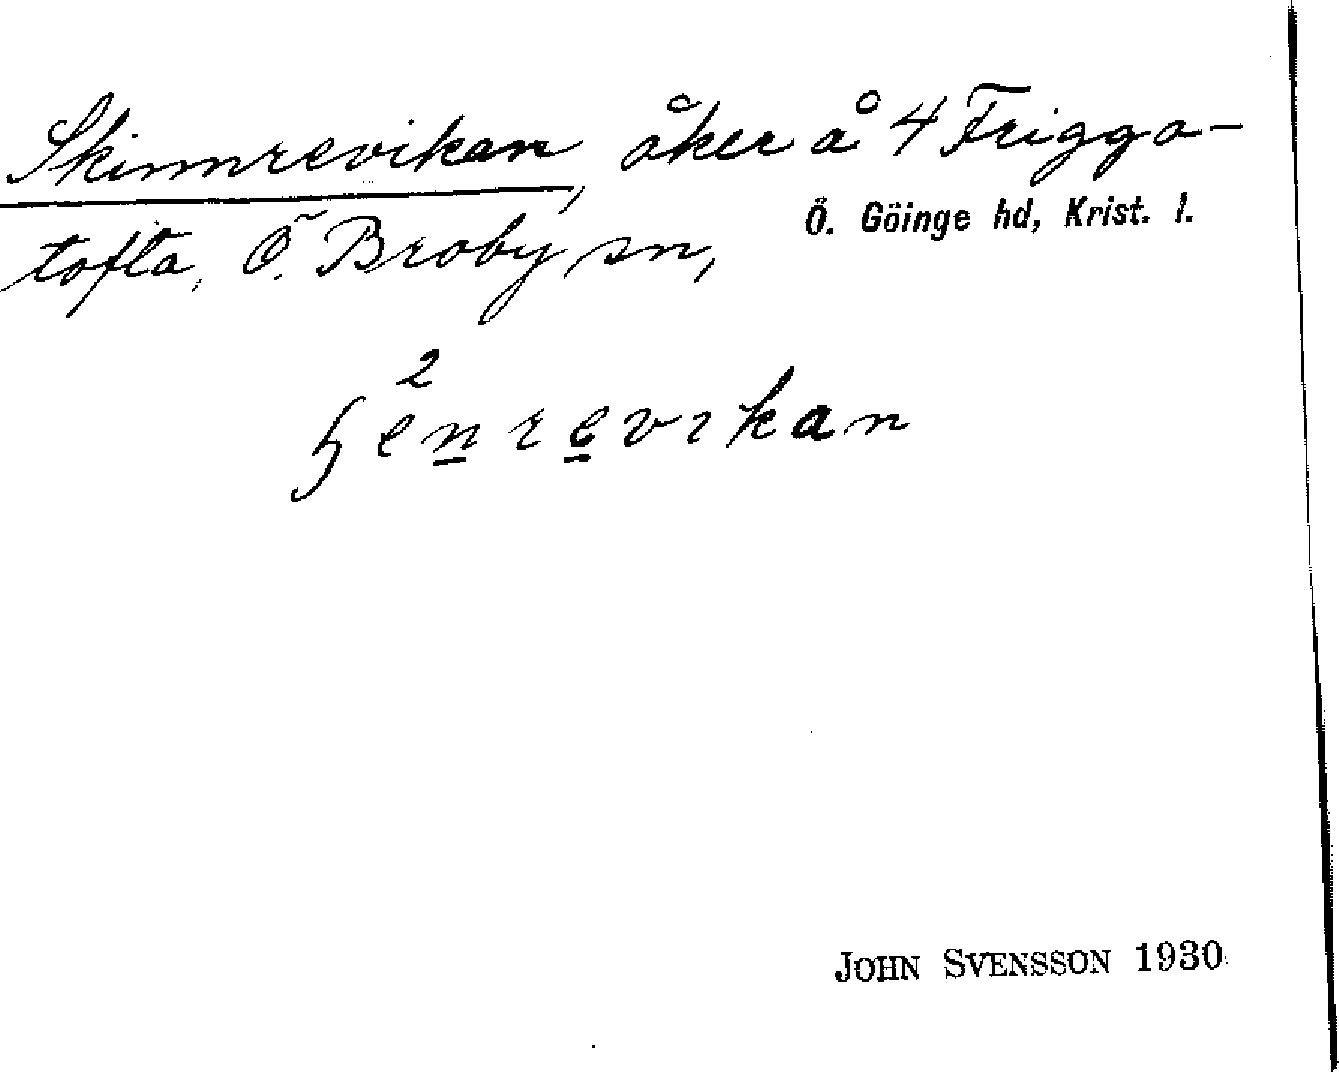 Skinnrevikan, åker å 4 Frigga-
tofta, Ö. Broby sn,
Ö. Göinge hd, Krist. l.
2
ɧenrevikan
JOHN SVENSSON 1930